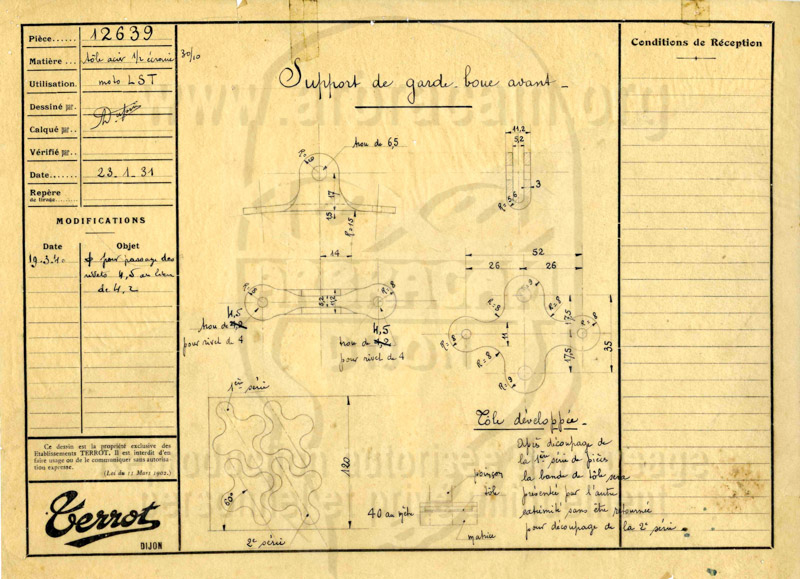 Pièce...... 12639
Matière... tôle acier 1/2 écrouie 30/10
Utilisation. moto LST
Dessiné par.
Calqué par..
Vérifié par..
Date....... 23.1.31
Repère
de tirage
MODIFICATIONS
Date Objet
19.3.40 ϕ pour passage des
rivets 4,5 au lieu
de 4,2
Ce dessin est la propriété exclusive des
Etablissements TERROT. Il est interdit d'en
faire usage ou de le communiquer sans autorisa-
tion expresse.
(Loi du 11 Mars 1902.)
Terrot
DIJON
Support de garde-boue avant
R=9
trou de 6,5
17
15
R=15
14
11,2
5,2
3
R=5,6
R=8
5,2
11,2
R=8
4,5
trou de 4,2
pour rivet de 4
4,5
trou de 4,2
pour rivet de 4
52
26 26
R=8
R=8
R=8
R=8
R=8
R=9
11
17,5
17,5
35
1ère série
60°
120
2e série
Tôle développée
Après découpage de
la 1ère série de pièces
la bande de tôle sera
présentée par l'autre
extrémité sans être retournée
pour découpage de la 2e série.
poinçon
tôle
40 au mètre
matrice
Conditions de Réception